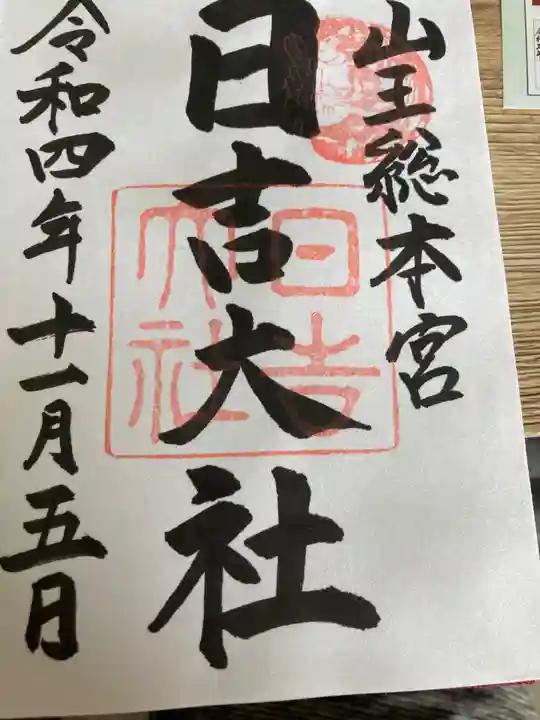 山王総本宮
日吉大社
日吉
大社
令和四年十一月五日